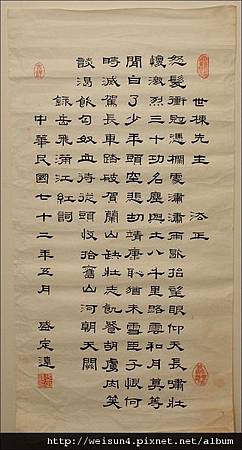 世棟先生 法正
怒髮衝冠憑欄處瀟瀟雨歇抬望眼仰天長嘯壯
懷激烈三十功名塵與土八千里路雲和月莫等
閒白了少年頭空悲切靖康恥猶未雪臣子恨何
時滅駕長車踏破賀蘭山缺壯志飢餐胡虜肉笑
談渴飲匈奴血待從頭收拾舊山河朝天闕
錄岳飛滿江紅詞
中華民國七十二年五月 盛定遠
http://weisun4.pixnet.net/album